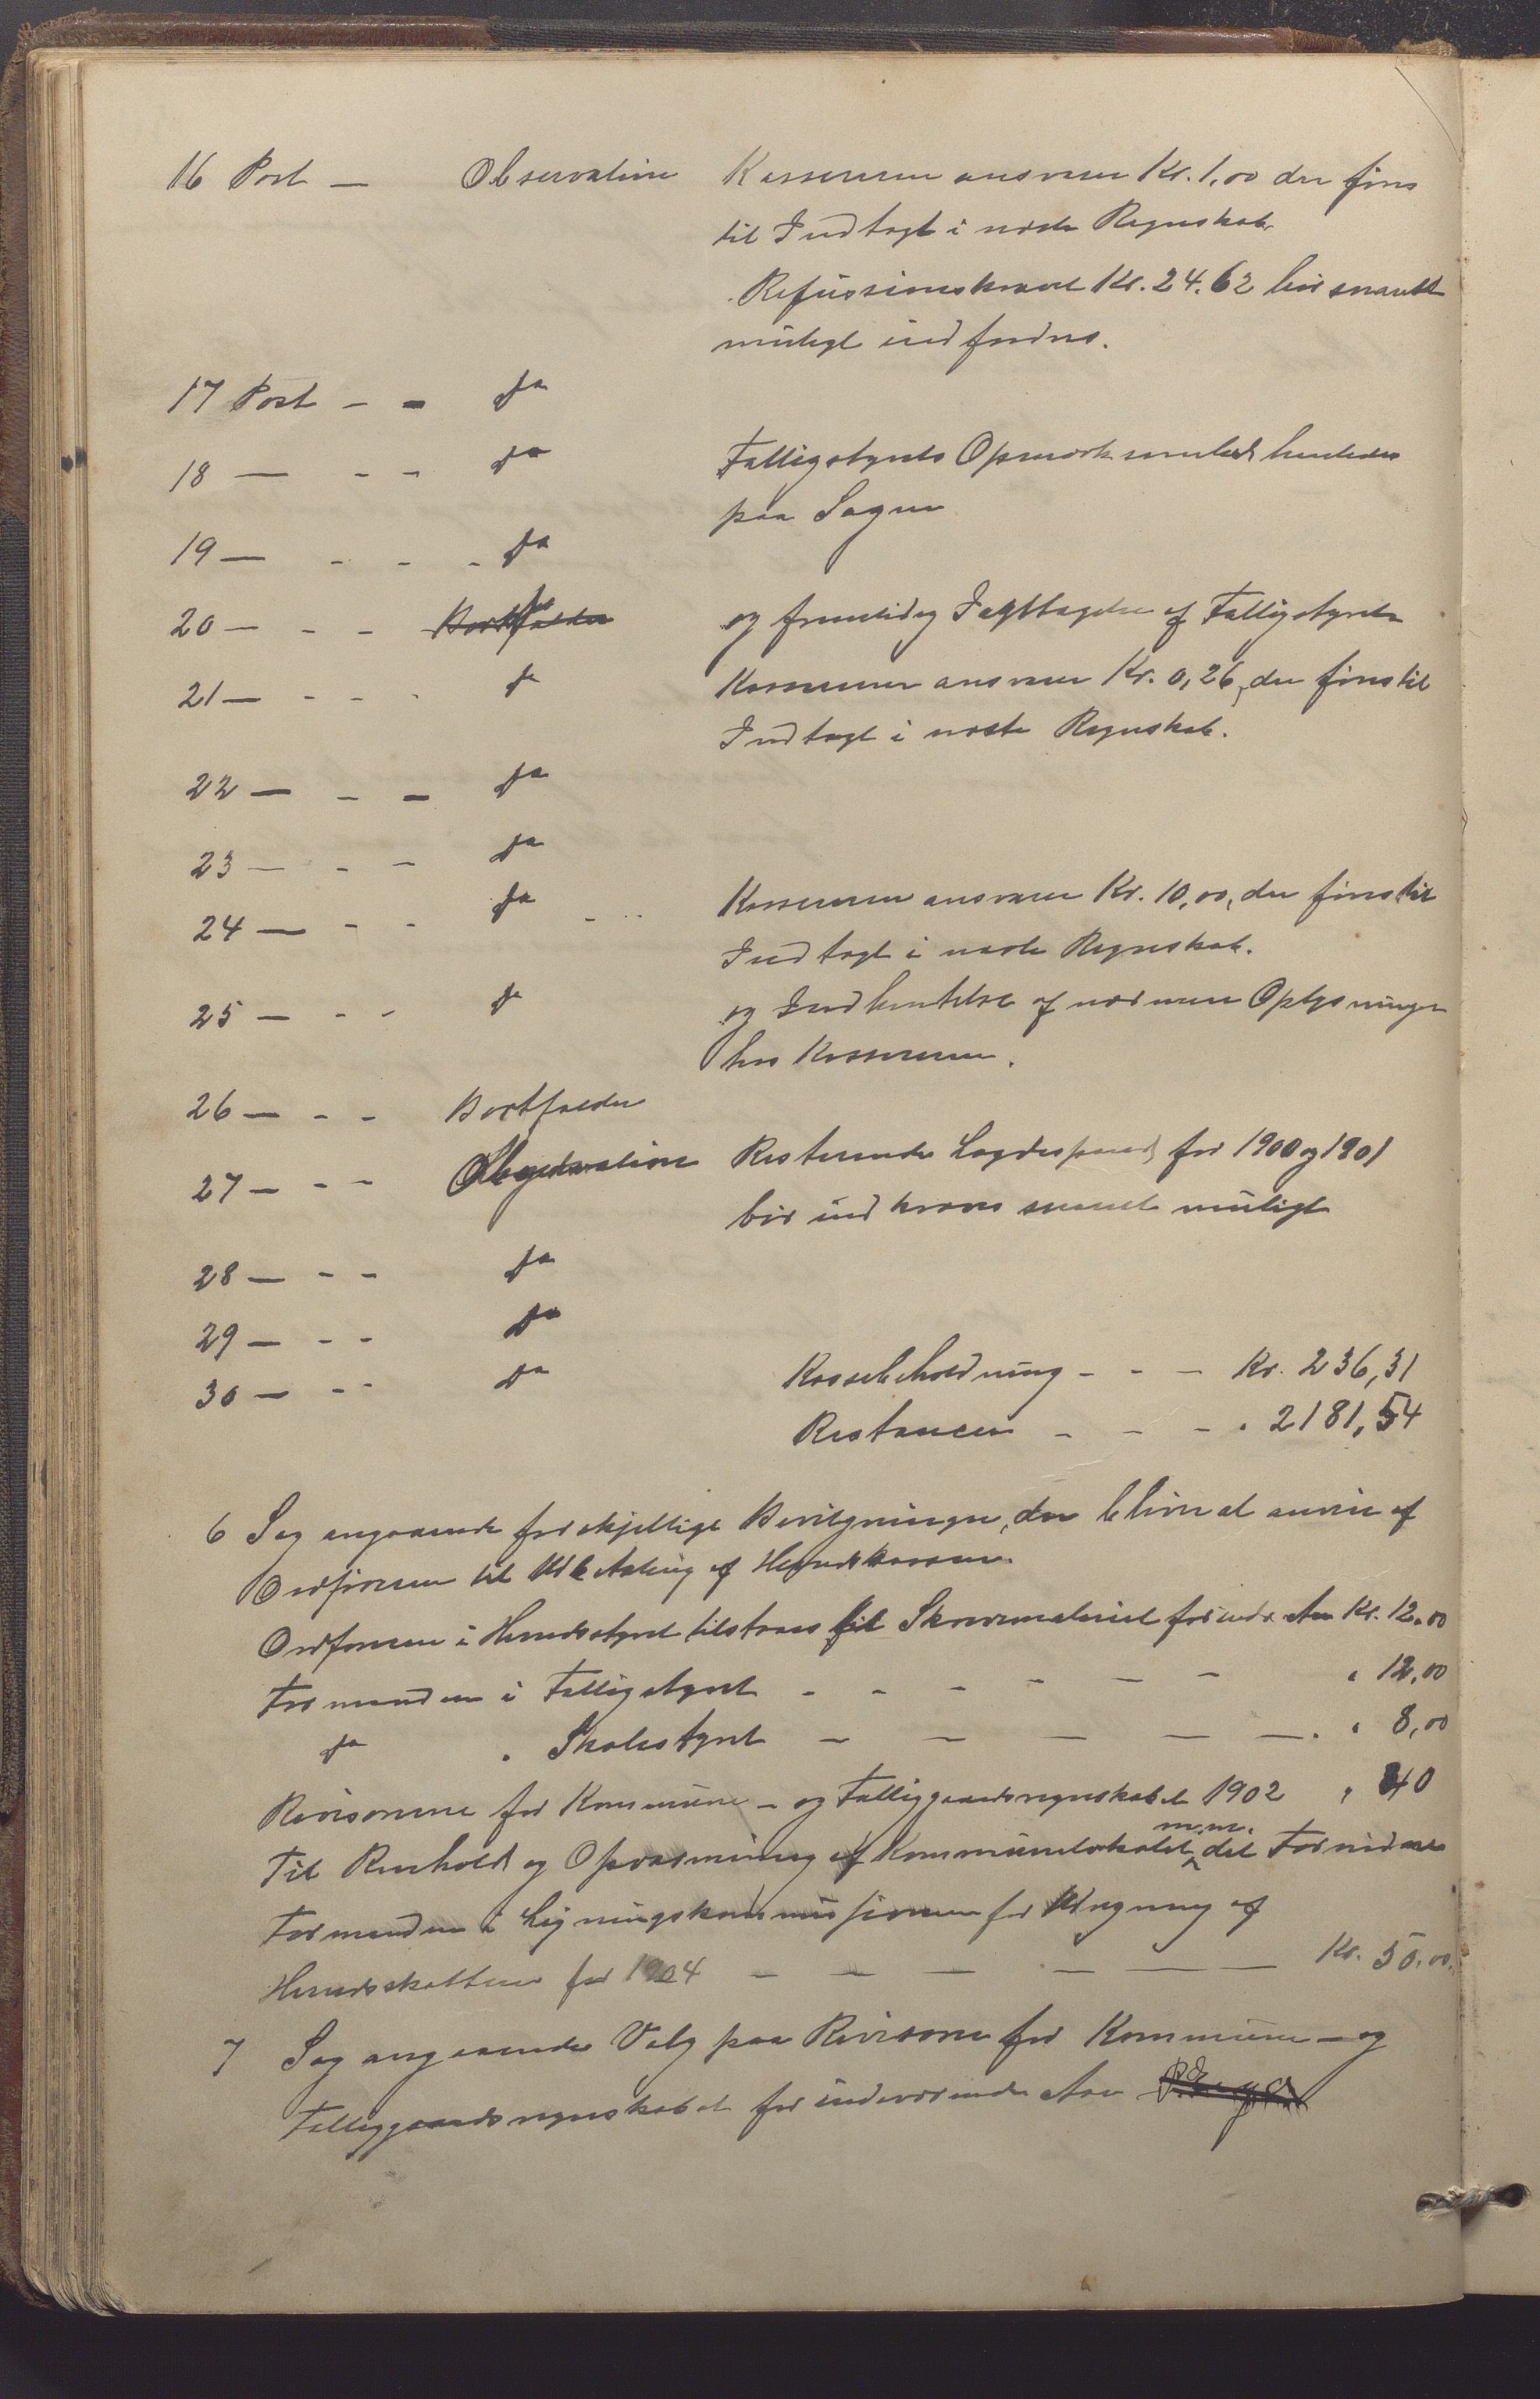 16 Post — Observation Kassereren ansvarer Kr. 1,00 der føres
til Indtægt i næste Regnskab.
Refusionskravet Kr. 24.62 bør snarest
muligt indfordres.
17 Post - - Do
18 — - - Do Fattigstyrets Opmærksomhed henledes
paa Sagen
19 — - - - Do
20 — - - Bortfalder Do og fremtidig Iagttagelse af Fattigstyret
21 — - - - Do Kassereren ansvarer Kr. 0,26, der føres til
Indtægt i næste Regnskab.
22 — - - Do
23 — - - Do
24 — - - Do Kassereren ansvarer Kr. 10,00, der føres til
Indtægt i næste Regnskab.
25 — - - Do og Indhentelse af nærmere Oplysninger
hos Kassereren.
26 — - - Bortfalder
27 — - - Observation Resterende Lægdes for 1900 og 1901
bør indkræves snarest muligt
28 — - - Do
29 — - - Do
30 — - - Do Kassebeholdning - - - Kr. 236,31
Restancer - - - " 2181,54
6 Sag angaaende forskjellige Bevilgninger, der bliver at anvise af
Ordføreren til Udbetaling af Herredskassen.
Ordføreren i Herredsstyret tilstaaes til Skrivemateriel for indv. Aar Kr. 12.00
Formanden i Fattigstyret - - - - - - " 12,00
Do " Skolestyret - - - - - " 8,00
Revisorerne for Kommune- og Fattiggaardsregnskabet 1902 " 40
Til Renhold og Opvarmning af Kommunelokalet m.m. det Fornødne
Formanden i Ligningskommissionen for Udregning af
Herredsskatten for 1904 — — — — — — Kr. 50.00.
7 Sag angaaende Valg paa Revisorer for Kommune- og
Fattiggaardsregnskabet for indeværende Aar